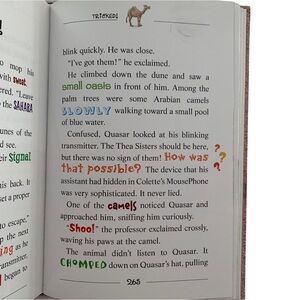 TRICKED!
blink quickly. He was close.
"I've got them!" he exclaimed.
He climbed down the dune and saw a
small oasis in front of him. Among the
palm trees were some Arabian camels
SLOWLY walking toward a small pool
of blue water.
Confused, Quasar looked at his blinking
transmitter. The Thea Sisters should be here,
but there was no sign of them! How was
that possible? The device that his
assistant had hidden in Colette's MousePhone
was very sophisticated. It never lied.
One of the camels noticed Quasar and
approached him, sniffing him curiously.
"Shoo!" the professor exclaimed crossly,
waving his paws at the camel.
The animal didn't listen to Quasar. It
CHOMPED down on Quasar's hat, pulling
265
!
to mop his
with sweat.
ered. "Leave
to the SAHARA
tunes of the
nd see.
their signal
his back. It
get a proper
to escape,"
the next
ing as he
I began to